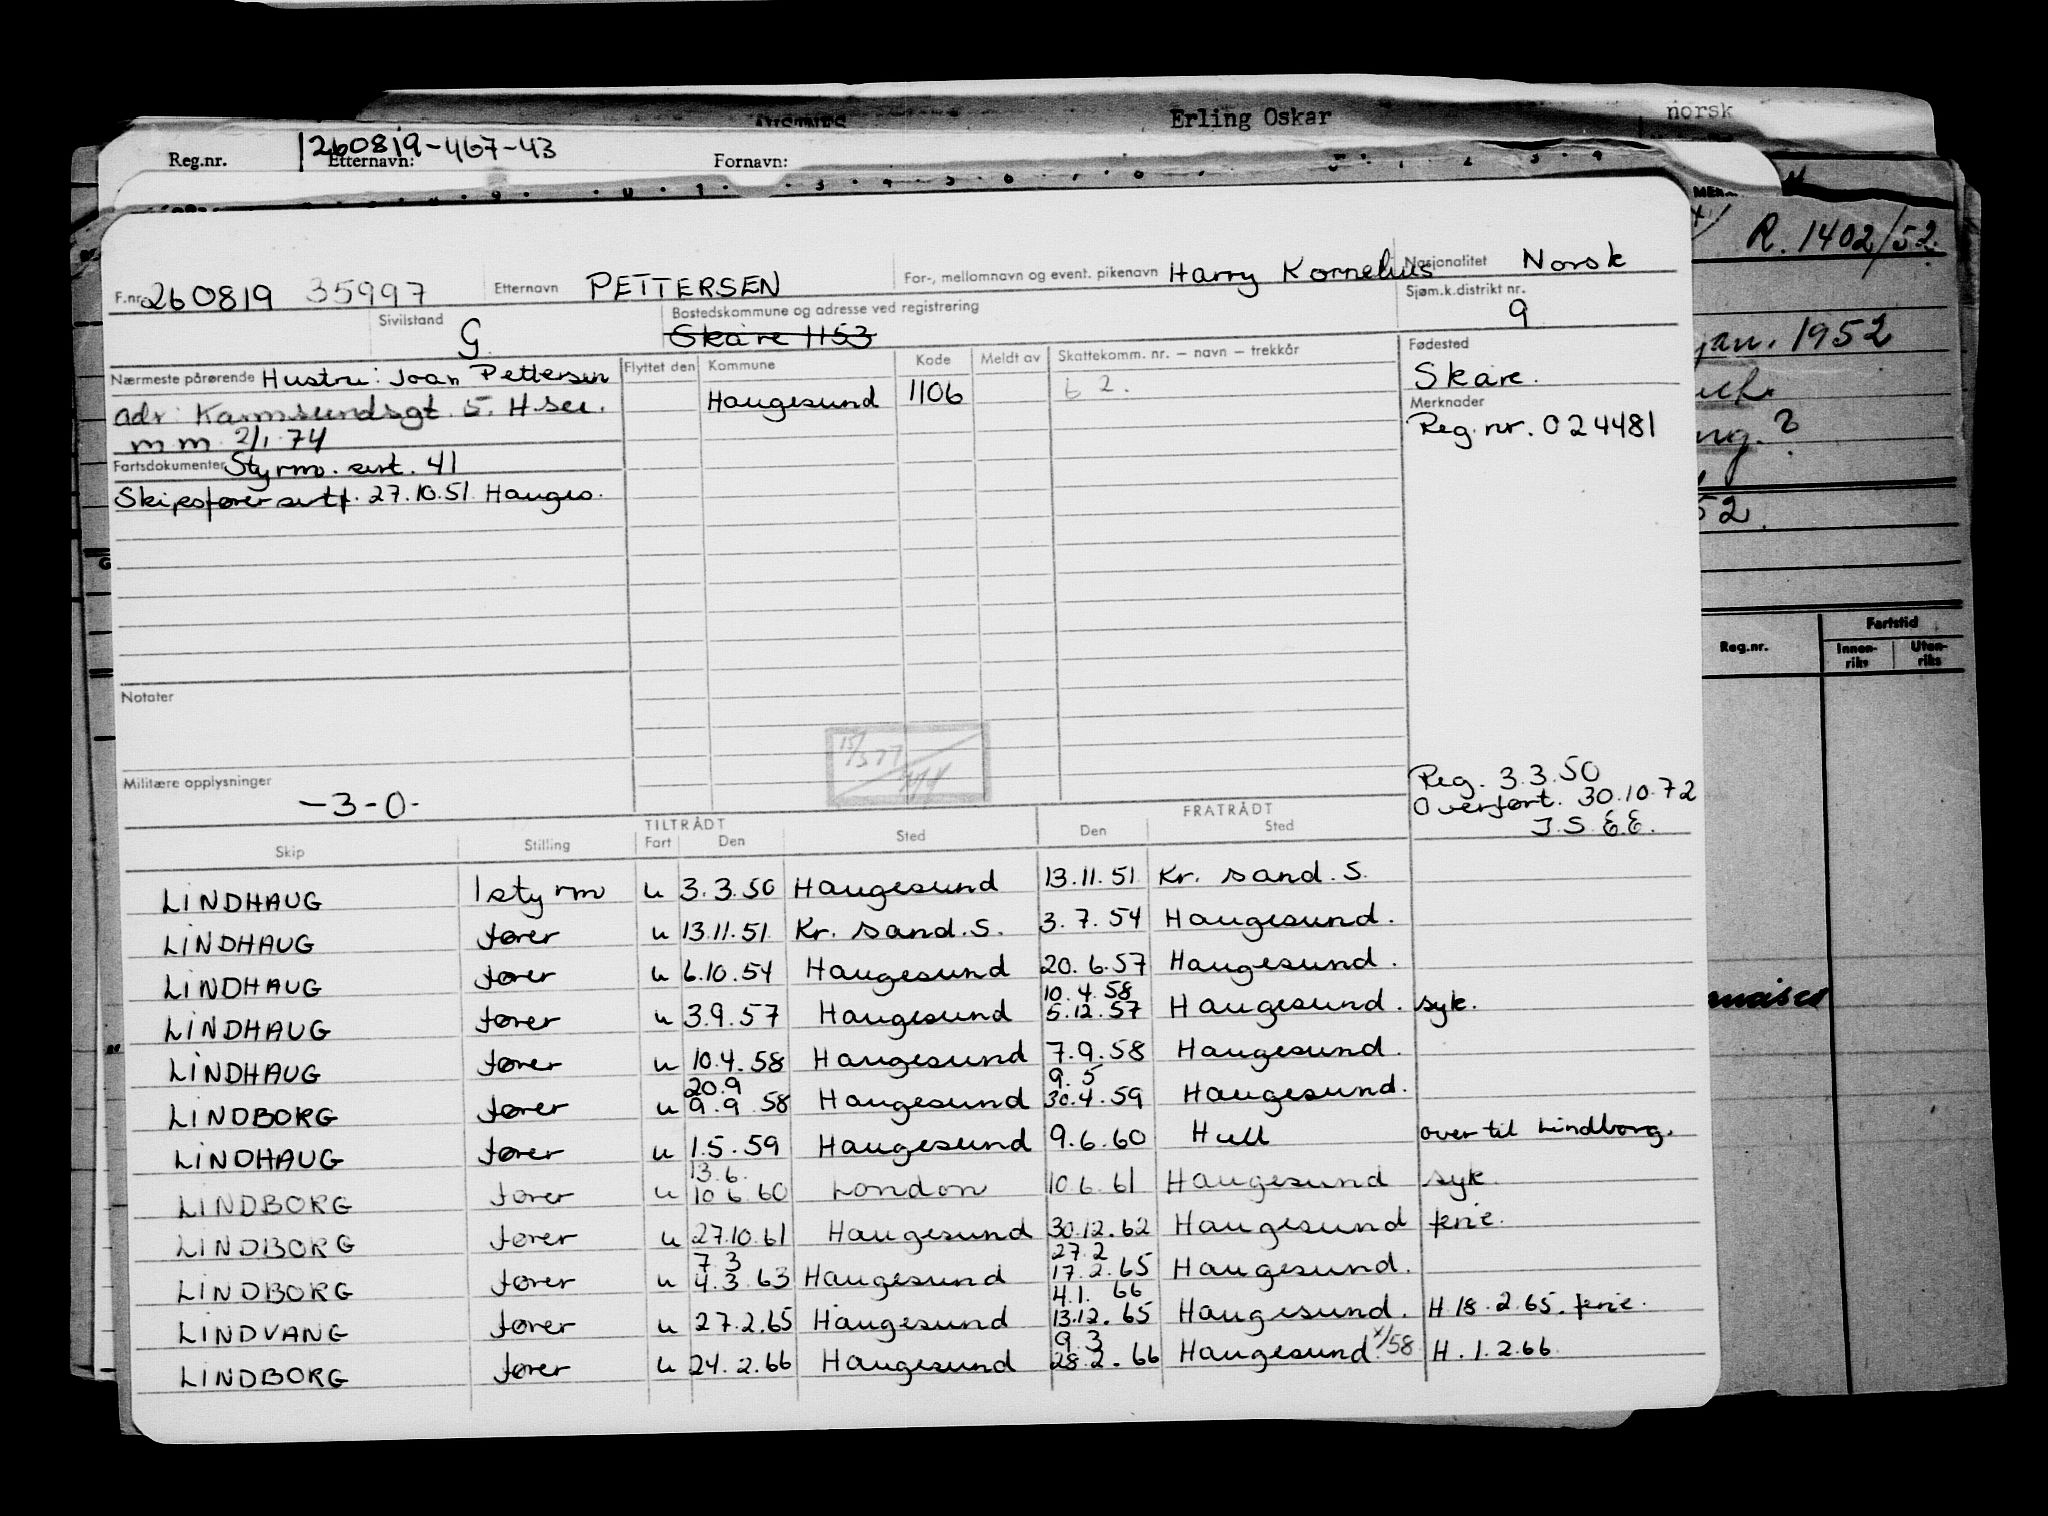 Erling Oskar norsk
Reg.nr. 260819-467-43 Etternavn: Fornavn:
R. 1402/52.
F.nr. 260819 35997 Etternavn PETTERSEN For-, mellomnavn og event. pikenavn Harry Kornelius Nasjonalitet Norsk
Sivilstand G. Bostedskommune og adresse ved registrering Skåre 1153 Sjøm.k.distrikt nr. 9
jan. 1952
Nærmeste pårørende Hustru: Joan Pettersen Flyttet den Kommune Kode Meldt av Skattekomm. nr. – navn – trekkår Fødested
Skåre.
adr: Karmsundsgt. 5. H.su. Haugesund 1106 62. Merknader
m m 2/1.74 Reg. nr. 024481
Fartsdokumenter Styrm. sert. 41
Skipsfører sertf. 27.10.51 Hauges. 52.
Reg.nr. Fartstid
Innen-riks Uten-riks
Notater
15/3 77
Militære opplysninger
-3-0-
Reg. 3.3.50
Overført. 30.10.72
J.S. E.E.
TILTRÅDT FRATRÅDT
Skip Stilling Fart Den Sted Den Sted
LINDHAUG 1 styrm u 3.3.50 Haugesund 13.11.51 Kr. sand. S.
LINDHAUG fører u 13.11.51 Kr. sand. S. 3.7.54 Haugesund.
LINDHAUG fører u 6.10.54 Haugesund 20.6.57 Haugesund.
10.4.58
LINDHAUG fører u 3.9.57 Haugesund 5.12.57 Haugesund. syk.
LINDHAUG fører u 10.4.58 Haugesund 7.9.58 Haugesund.
20.9 9.5
LINDBORG fører u 9.9.58 Haugesund 30.4.59 Haugesund.
LINDHAUG fører u 1.5.59 Haugesund 9.6.60 Hull over til Lindborg.
13.6.
LINDBORG fører u 10 6 60 London 10.6.61 Haugesund syk.
LINDBORG fører u 27.10.61 Haugesund 30.12.62 Haugesund ferie.
7.3 27.2
LINDBORG fører u 4.3.63 Haugesund 17.2.65 Haugesund.
4.1. 66
LINDVANG fører u 27.2.65 Haugesund 13.12.65 Haugesund. H 18.2.65. ferie.
9.3
LINDBORG fører u 24.2.66 Haugesund 28.2.66 Haugesund x/58 H.1.2.66